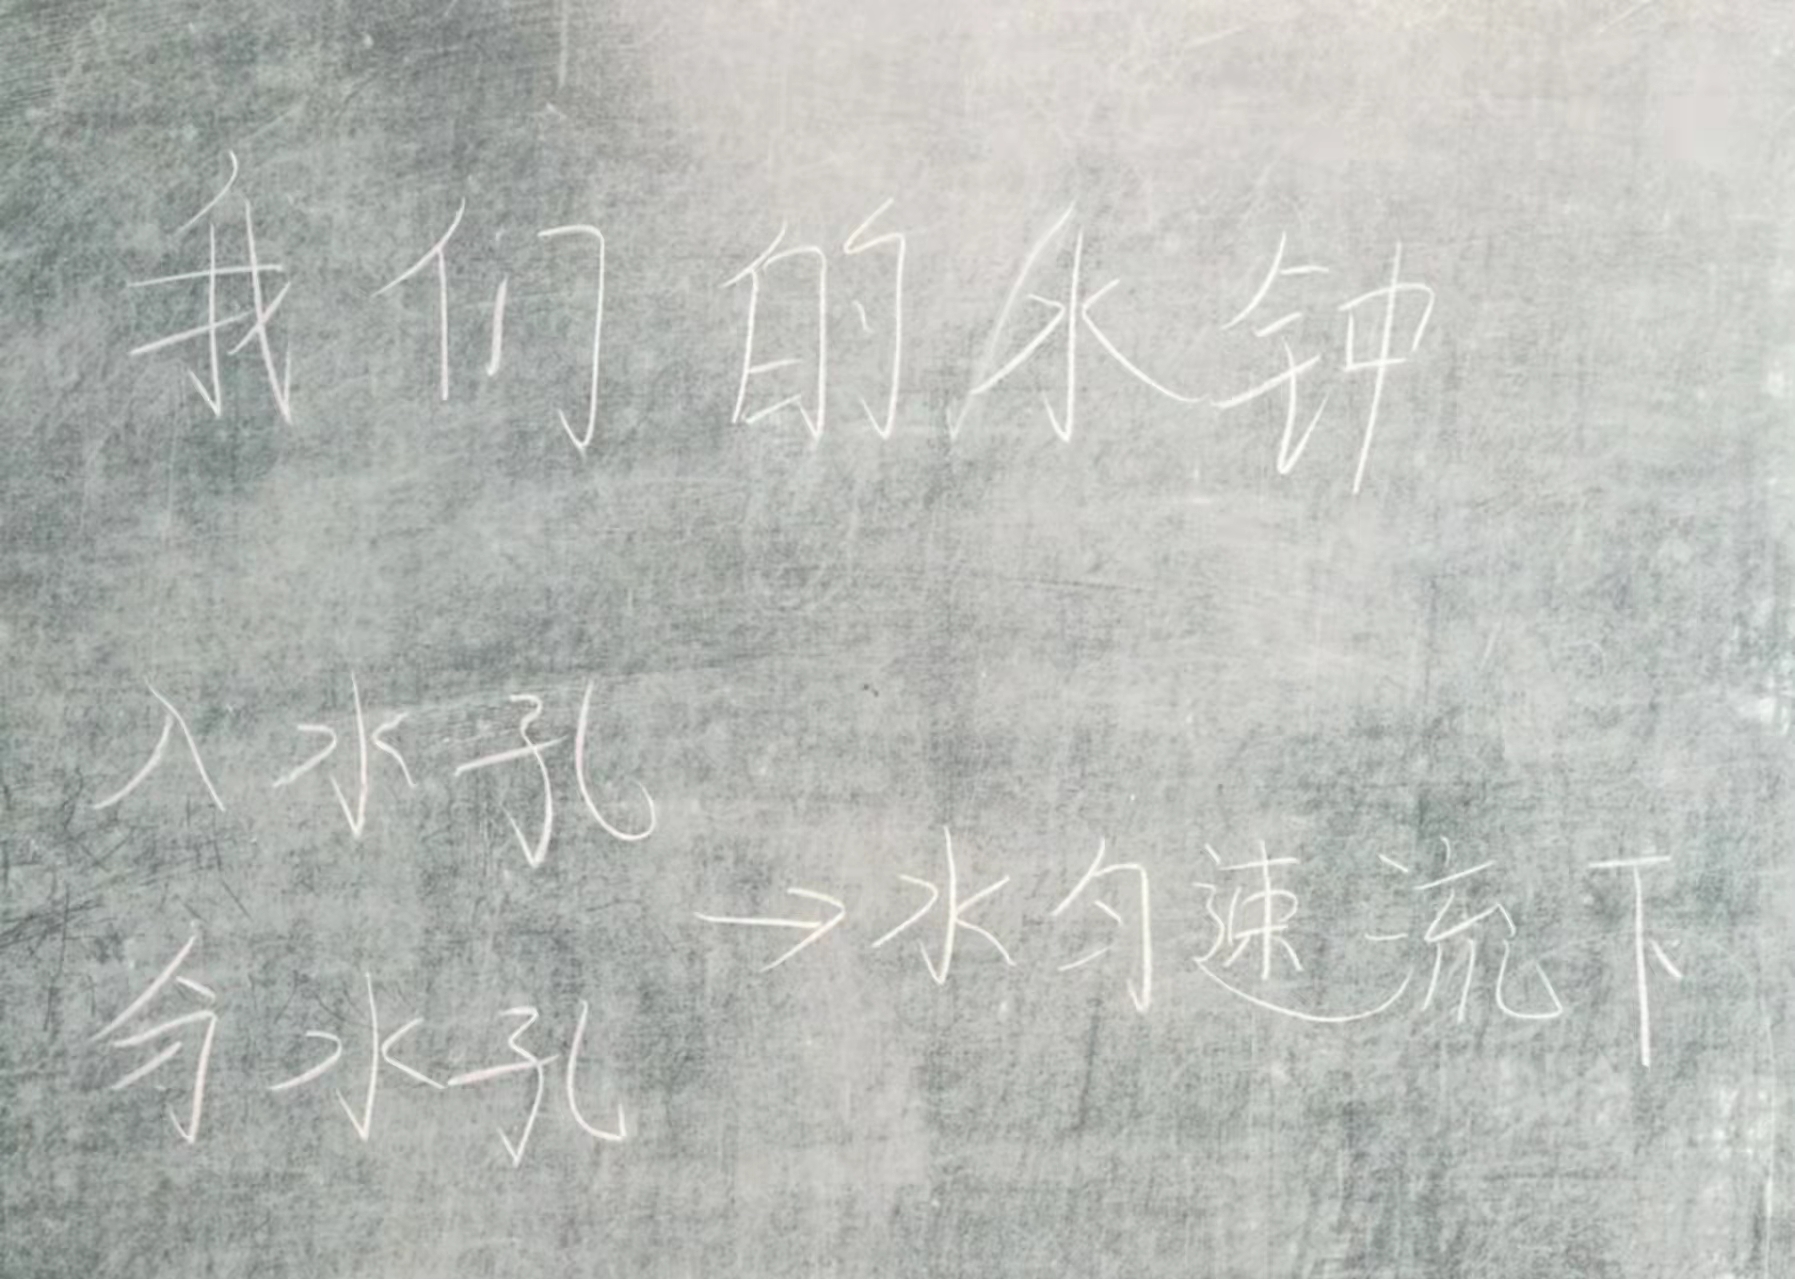 我们的水钟
入水孔
→水匀速流下
分水孔